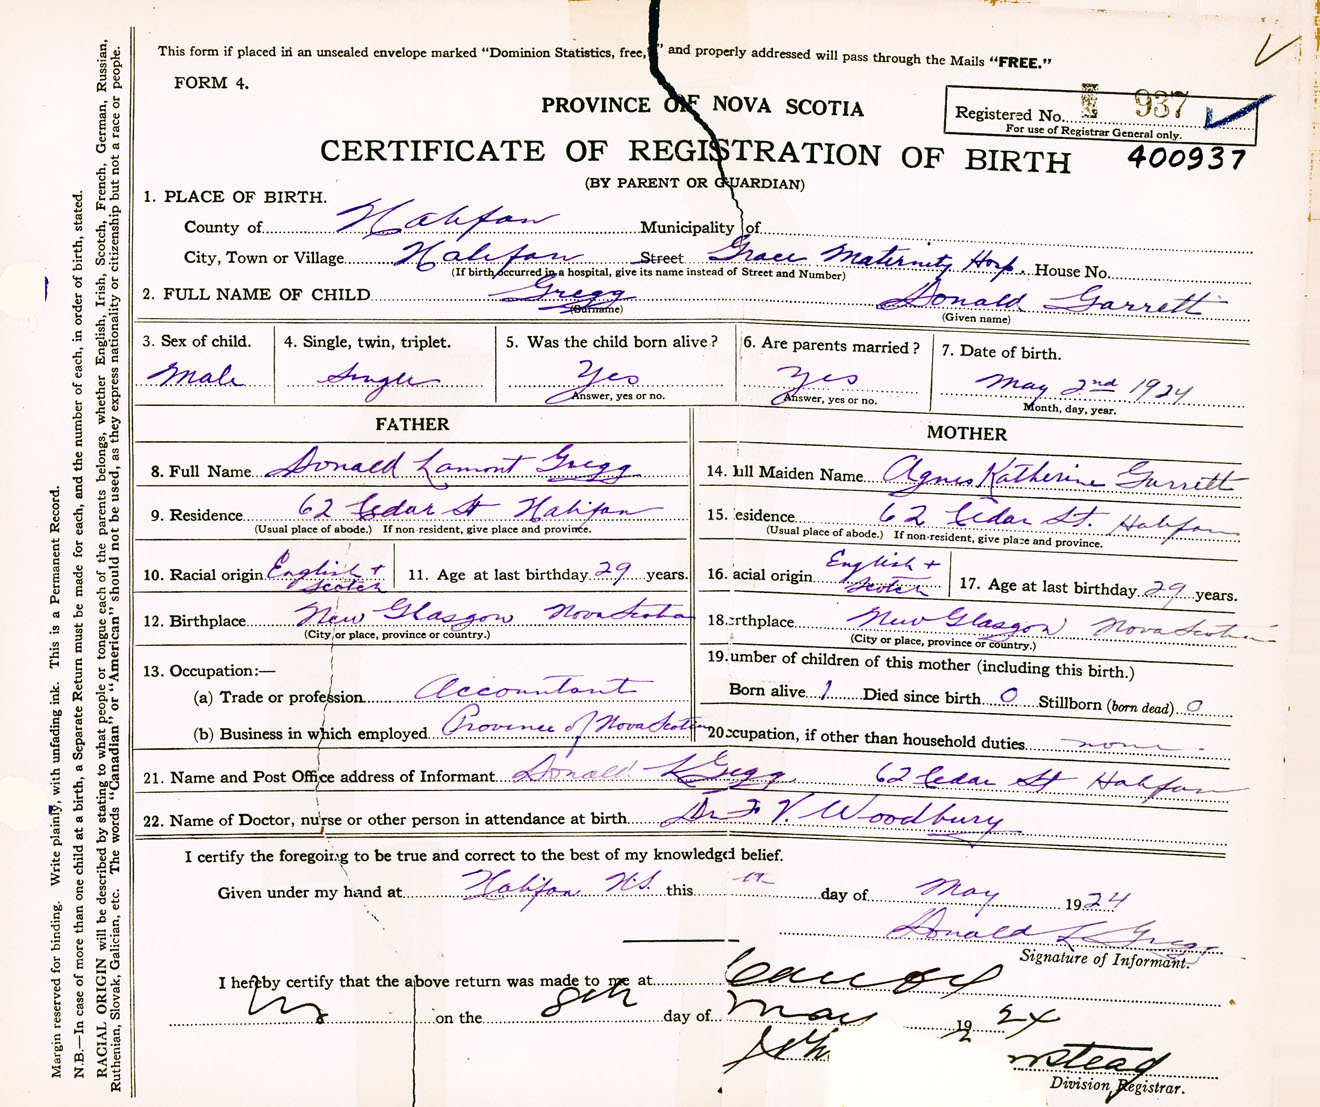 This form if placed in an unsealed envelope marked "Dominion Statistics, free," and properly addressed will pass through the Mails "FREE."
FORM 4.
PROVINCE OF NOVA SCOTIA
Registered No. 937
For use of Registrar General only.
CERTIFICATE OF REGISTRATION OF BIRTH
400937
(BY PARENT OR GUARDIAN)
1. PLACE OF BIRTH.
County of Halifax Municipality of
City, Town or Village Halifax Street Grace Maternity Hosp. House No.
(If birth occurred in a hospital, give its name instead of Street and Number)
2. FULL NAME OF CHILD Gregg Donald Garrett
(Surname) (Given name)
3. Sex of child. 4. Single, twin, triplet. 5. Was the child born alive? 6. Are parents married? 7. Date of birth.
Male Single Yes Yes May 2nd 1924
Answer, yes or no. Answer, yes or no. Month, day, year.
FATHER MOTHER
8. Full Name Donald Lamont Gregg 14. ull Maiden Name Agnes Katherine Garrett
9. Residence 62 Cedar St Halifax 15. esidence 62 Cedar St. Halifax
(Usual place of abode.) If non-resident, give place and province. (Usual place of abode.) If non-resident, give place and province.
10. Racial origin English + Scotch 11. Age at last birthday 29 years. 16. acial origin English + Scotch 17. Age at last birthday 29 years.
12. Birthplace New Glasgow Nova Scotia 18. rthplace New Glasgow Nova Scotia
(City or place, province or country.) (City or place, province or country.)
13. Occupation:— 19. umber of children of this mother (including this birth.)
(a) Trade or profession Accountant Born alive 1 Died since birth 0 Stillborn (born dead) 0
(b) Business in which employed Province of Nova Scotia 20 ccupation, if other than household duties none
21. Name and Post Office address of Informant Donald L Gregg. 62 Cedar St Halifax
22. Name of Doctor, nurse or other person in attendance at birth Dr F. V. Woodbury
I certify the foregoing to be true and correct to the best of my knowledge d belief.
Given under my hand at Halifax N.S. this day of May 1924
Donald L Gregg
Signature of Informant.
I hereby certify that the above return was made to me at
on the 8th day of May 1924
Division Registrar.
Margin reserved for binding. Write plainly, with unfading ink. This is a Permanent Record.
N.B.—In case of more than one child at a birth, a Separate Return must be made for each, and the number of each, in order of birth, stated.
RACIAL ORIGIN will be described by stating to what people or tongue each of the parents belongs, whether English, Irish, Scotch, French, German, Russian,
Ruthenian, Slovak, Galician, etc. The words "Canadian" or "American" should not be used, as they express nationality or citizenship but not a race or people.